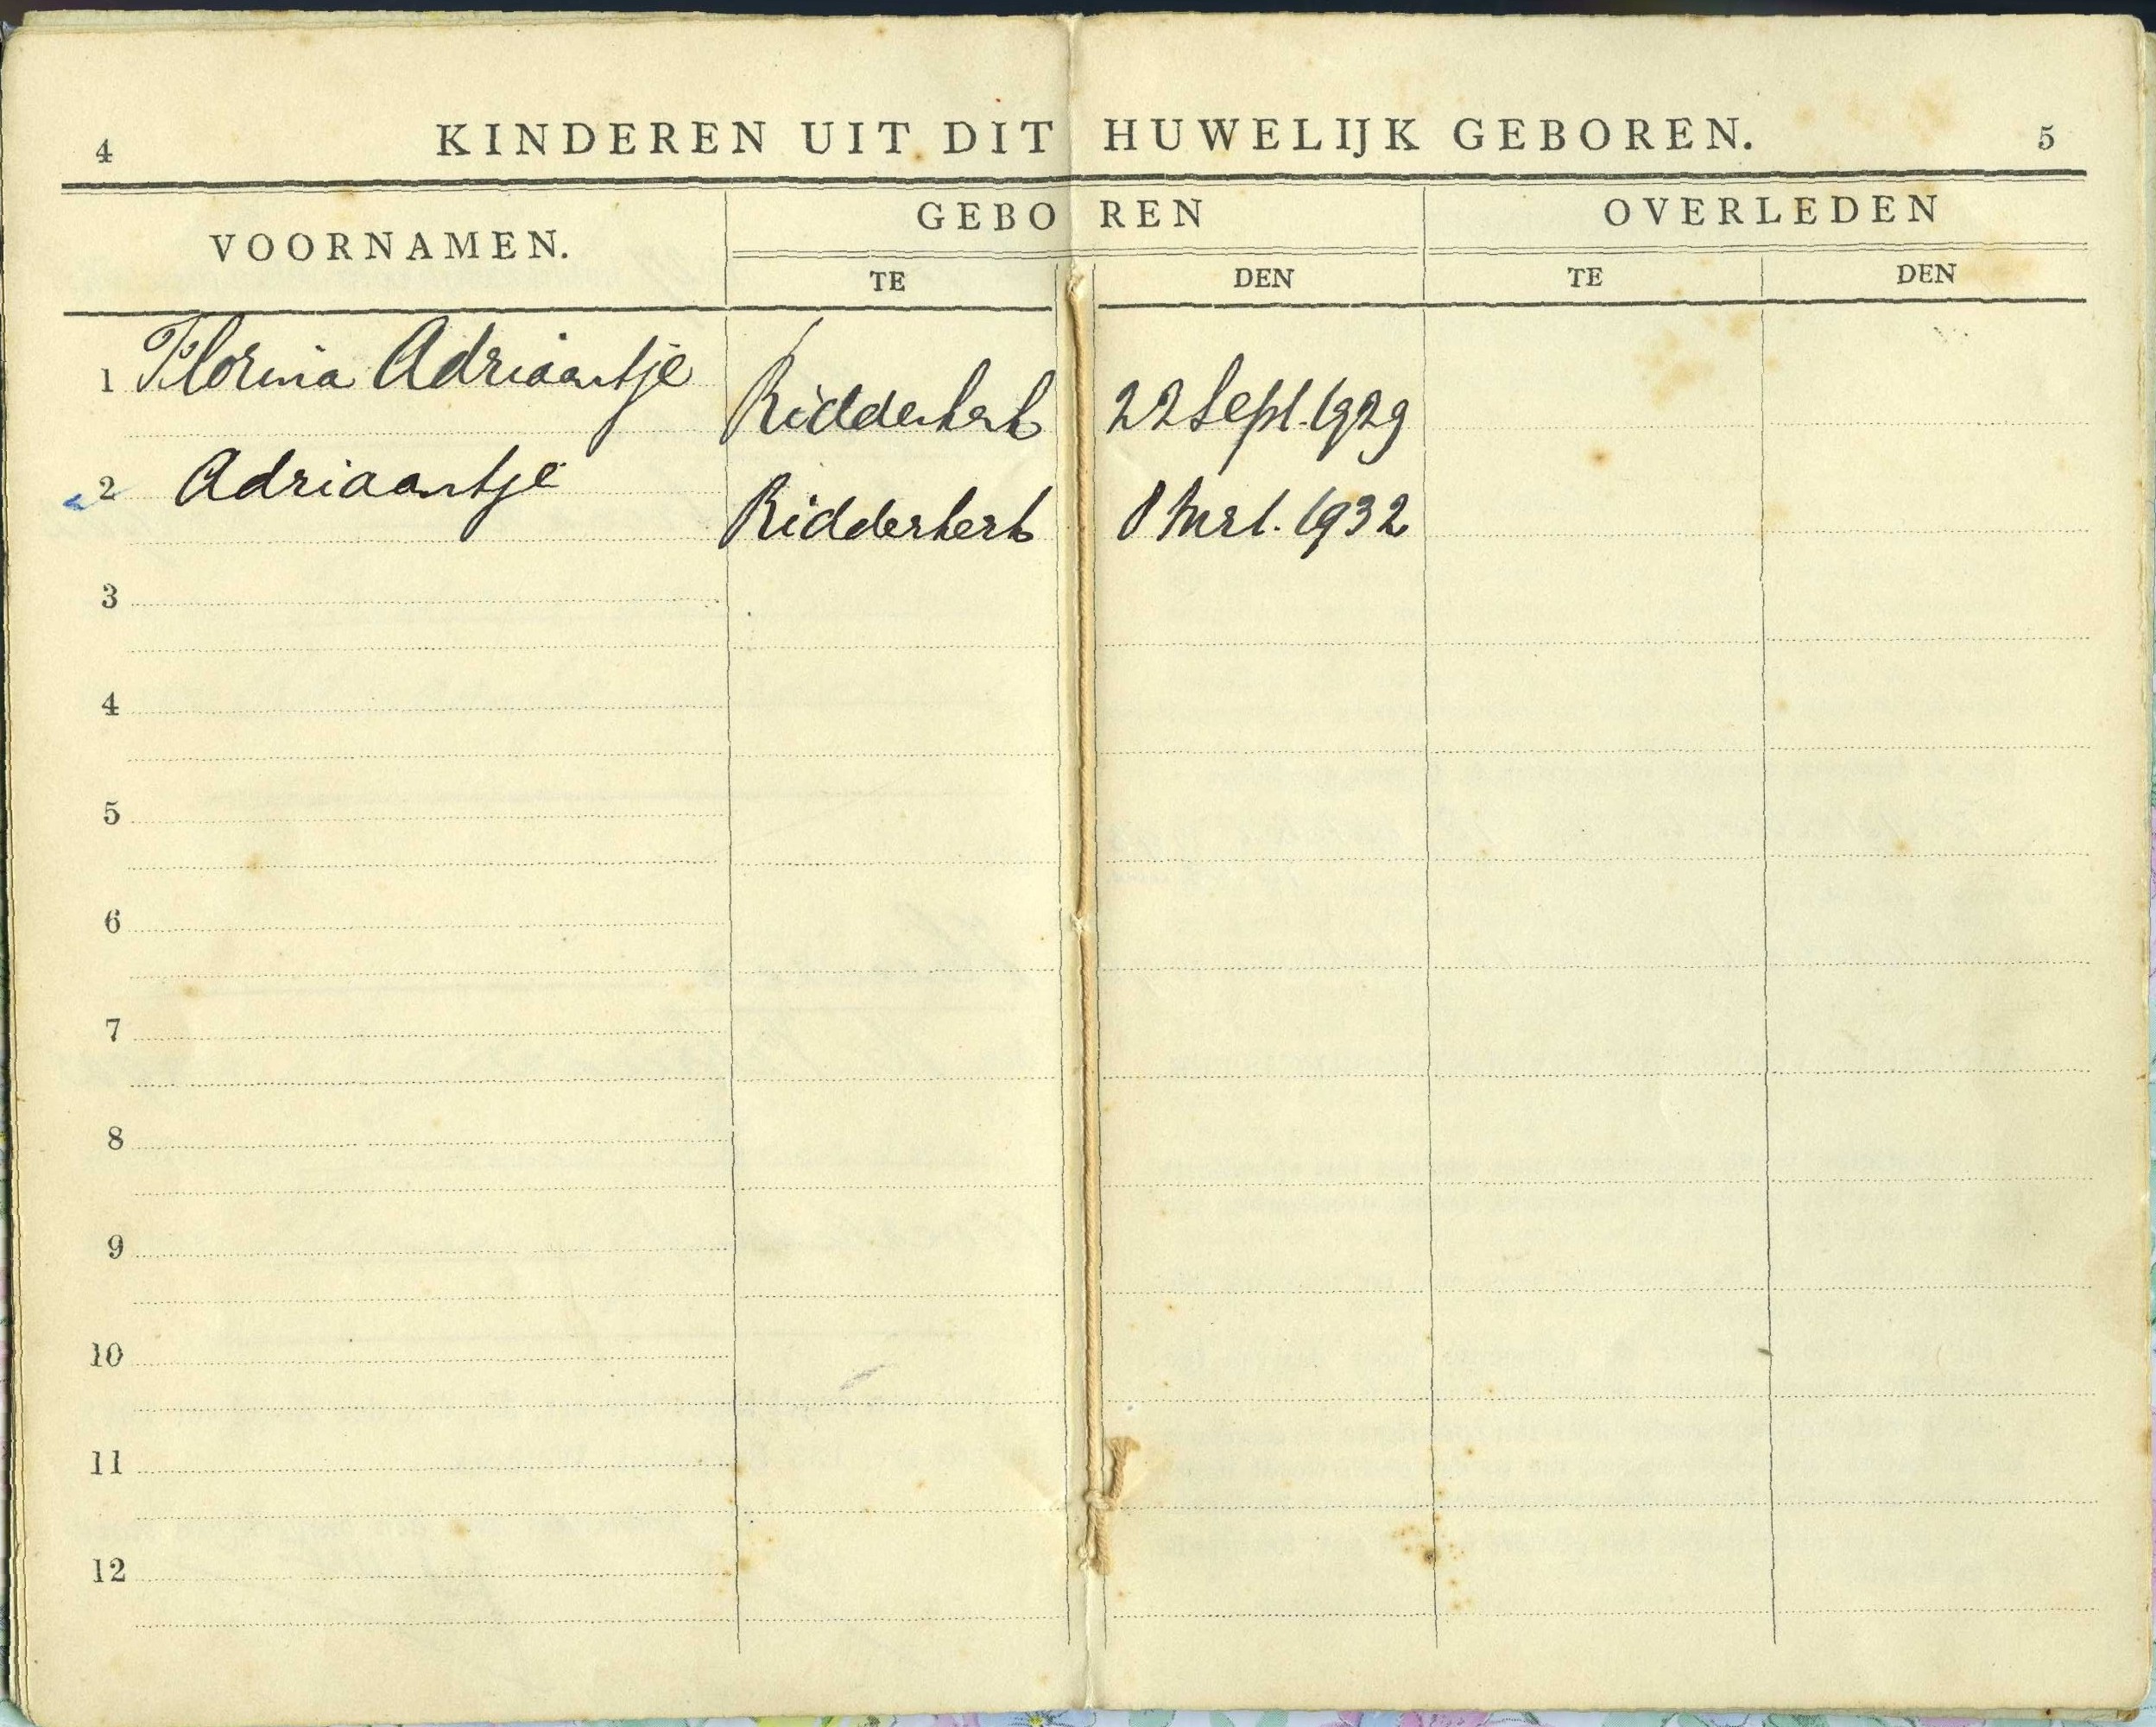 4 KINDEREN UIT DIT HUWELIJK GEBOREN. 5
VOORNAMEN. GEBOREN OVERLEDEN
TE DEN TE DEN
1 Florina Adriaantje
Ridderkerk 22 Sept. 1929
2 Adriaantje
Ridderkerk 8 Mrt. 1932
3
4
5
6
7
8
9
10
11
12